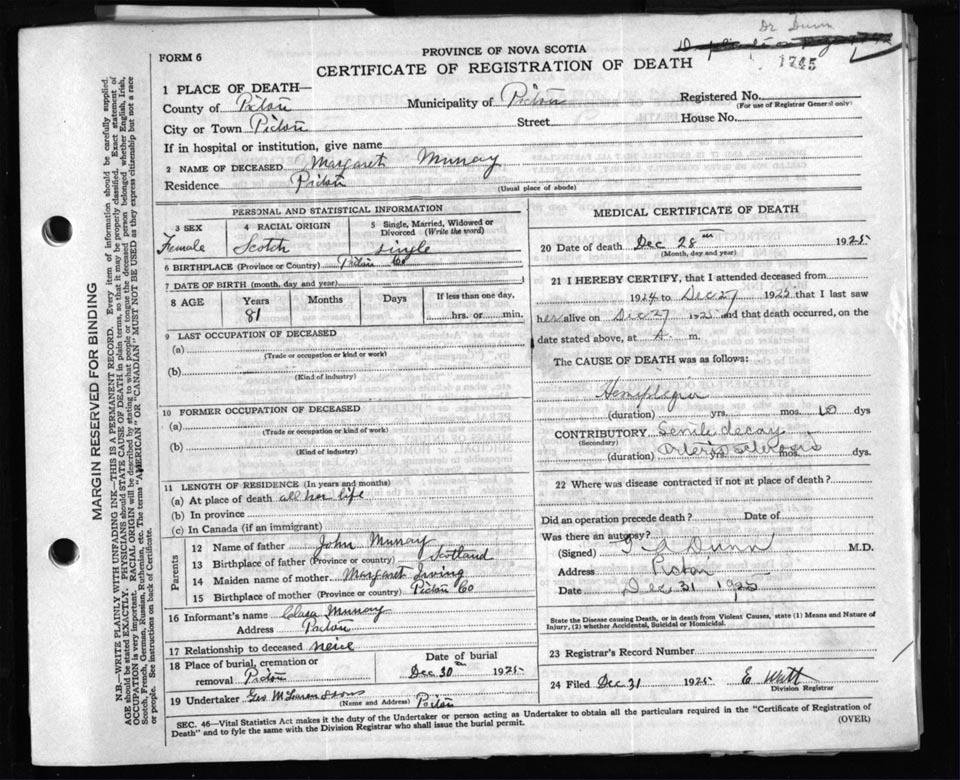 Dr Dunn
1745
FORM 6
PROVINCE OF NOVA SCOTIA
CERTIFICATE OF REGISTRATION OF DEATH
1 PLACE OF DEATH—
County of Pictou Municipality of Pictou Registered No.
(For use of Registrar General only)
City or Town Pictou Street House No.
If in hospital or institution, give name
2 NAME OF DECEASED Margaret Murray
Residence Pictou
(Usual place of abode)
PERSONAL AND STATISTICAL INFORMATION
3 SEX 4 RACIAL ORIGIN 5 Single, Married, Widowed or Divorced (Write the word)
Female Scotch single
6 BIRTHPLACE (Province or Country) Pictou Co
7 DATE OF BIRTH (month, day and year)
8 AGE Years Months Days If less than one day,
81 hrs. or min.
9 LAST OCCUPATION OF DECEASED
(a)
(Trade or occupation or kind or work)
(b)
(Kind of industry)
10 FORMER OCCUPATION OF DECEASED
(a)
(Trade or occupation or kind of work)
(b)
(Kind of industry)
11 LENGTH OF RESIDENCE (In years and months)
(a) At place of death all her life
(b) In province
(c) In Canada (if an immigrant)
Parents
12 Name of father John Murray
13 Birthplace of father (Province or country) Scotland
14 Maiden name of mother Margaret Irving
15 Birthplace of mother (Province or country) Pictou Co
16 Informant's name Clara Murray
Address Pictou
17 Relationship to deceased neice
18 Place of burial, cremation or removal Pictou
Date of burial
Dec 30th 1925
19 Undertaker Geo McLearn & Sons Pictou
(Name and Address)
MEDICAL CERTIFICATE OF DEATH
20 Date of death Dec 28th 1925
(Month, day and year)
21 I HEREBY CERTIFY, that I attended deceased from
1924 to Dec 27 1925 that I last saw
her alive on Dec 27 1925 and that death occurred, on the
date stated above, at A. m.
The CAUSE OF DEATH was as follows:
Hemiplegia
(duration) yrs. mos. 10 dys
CONTRIBUTORY Senile decay
(Secondary)
Arterio sclerosis
(duration) yrs. mos. dys.
22 Where was disease contracted if not at place of death?
Did an operation precede death? Date of
Was there an autopsy?
(Signed) Dunn M.D.
Address Pictou
Date Dec 31 1925
State the Disease causing Death, or in death from Violent Causes, state (1) Means and Nature of
Injury, (2) whether Accidental, Suicidal or Homicidal.
23 Registrar's Record Number
24 Filed Dec 31 1925 E Watt
Division Registrar
SEC. 46—Vital Statistics Act makes it the duty of the Undertaker or person acting as Undertaker to obtain all the particulars required in the "Certificate of Registration of
Death" and to fyle the same with the Division Registrar who shall issue the burial permit.
(OVER)
MARGIN RESERVED FOR BINDING
N.B.—WRITE PLAINLY WITH UNFADING INK—THIS IS A PERMANENT RECORD. Every item of information should be carefully supplied.
AGE should be stated EXACTLY. PHYSICIANS should STATE CAUSE OF DEATH in plain terms, so that it may be properly classified. Exact statement of
OCCUPATION is very important. RACIAL ORIGIN will be described by stating to what people or tongue the deceased person belonged whether English, Irish,
Scotch, French, German, Russian, Ruthenian, etc. The terms "AMERICAN" OR "CANADIAN" MUST NOT BE USED as they express citizenship but not a race
or people. See instructions on back of Certificate.